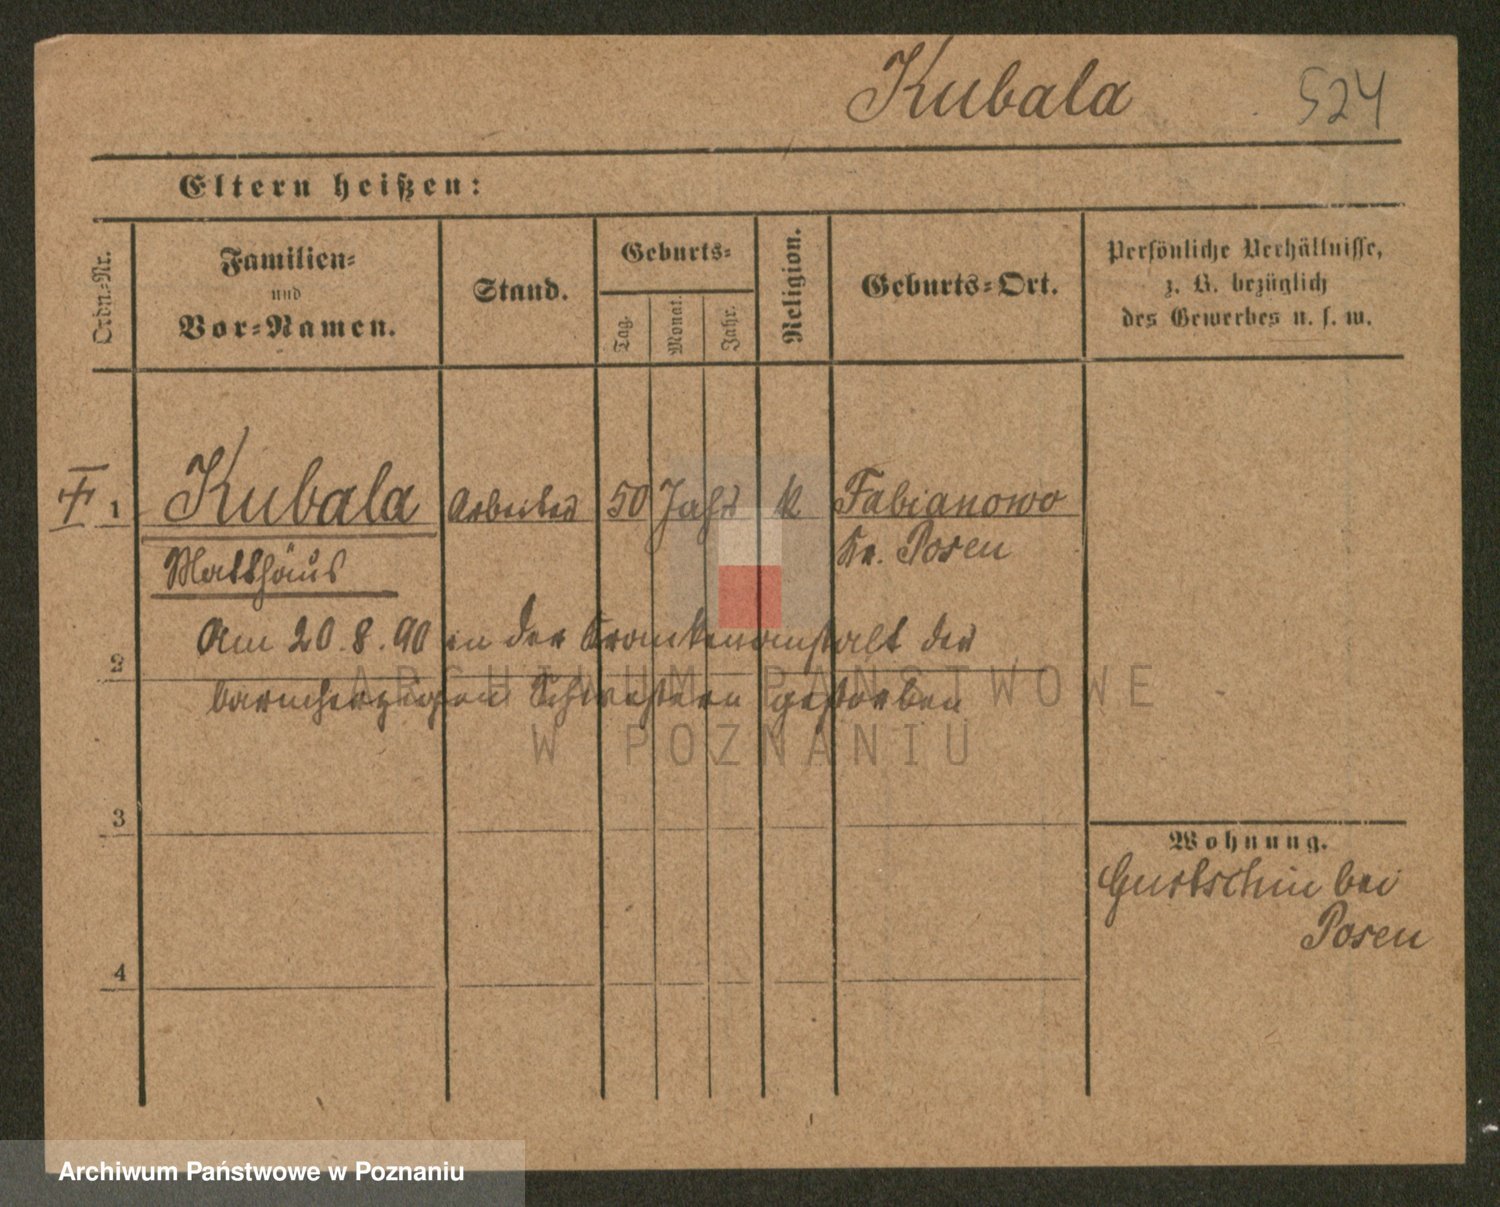 Kubala 524
Eltern heißen:
Ordn.-Nr.
Familien-
und
Vor-Namen.
Stand.
Geburts-
Tag.
Monat.
Jahr.
Religion.
Geburts-Ort.
Persönliche Verhältnisse,
z. B. bezüglich
des Gewerbes u. s. w.
1 Kubala Arbeiter 50 Jahr k Fabianowo
Matthäus Kr. Posen
Am 20.8.90 in der Krankenanstalt der
2
barmherzigen Schwestern gestorben
3
Wohnung.
Gurtschin bei
Posen
4
ARCHIWUM PAŃSTWOWE
W POZNANIU
Archiwum Państwowe w Poznaniu